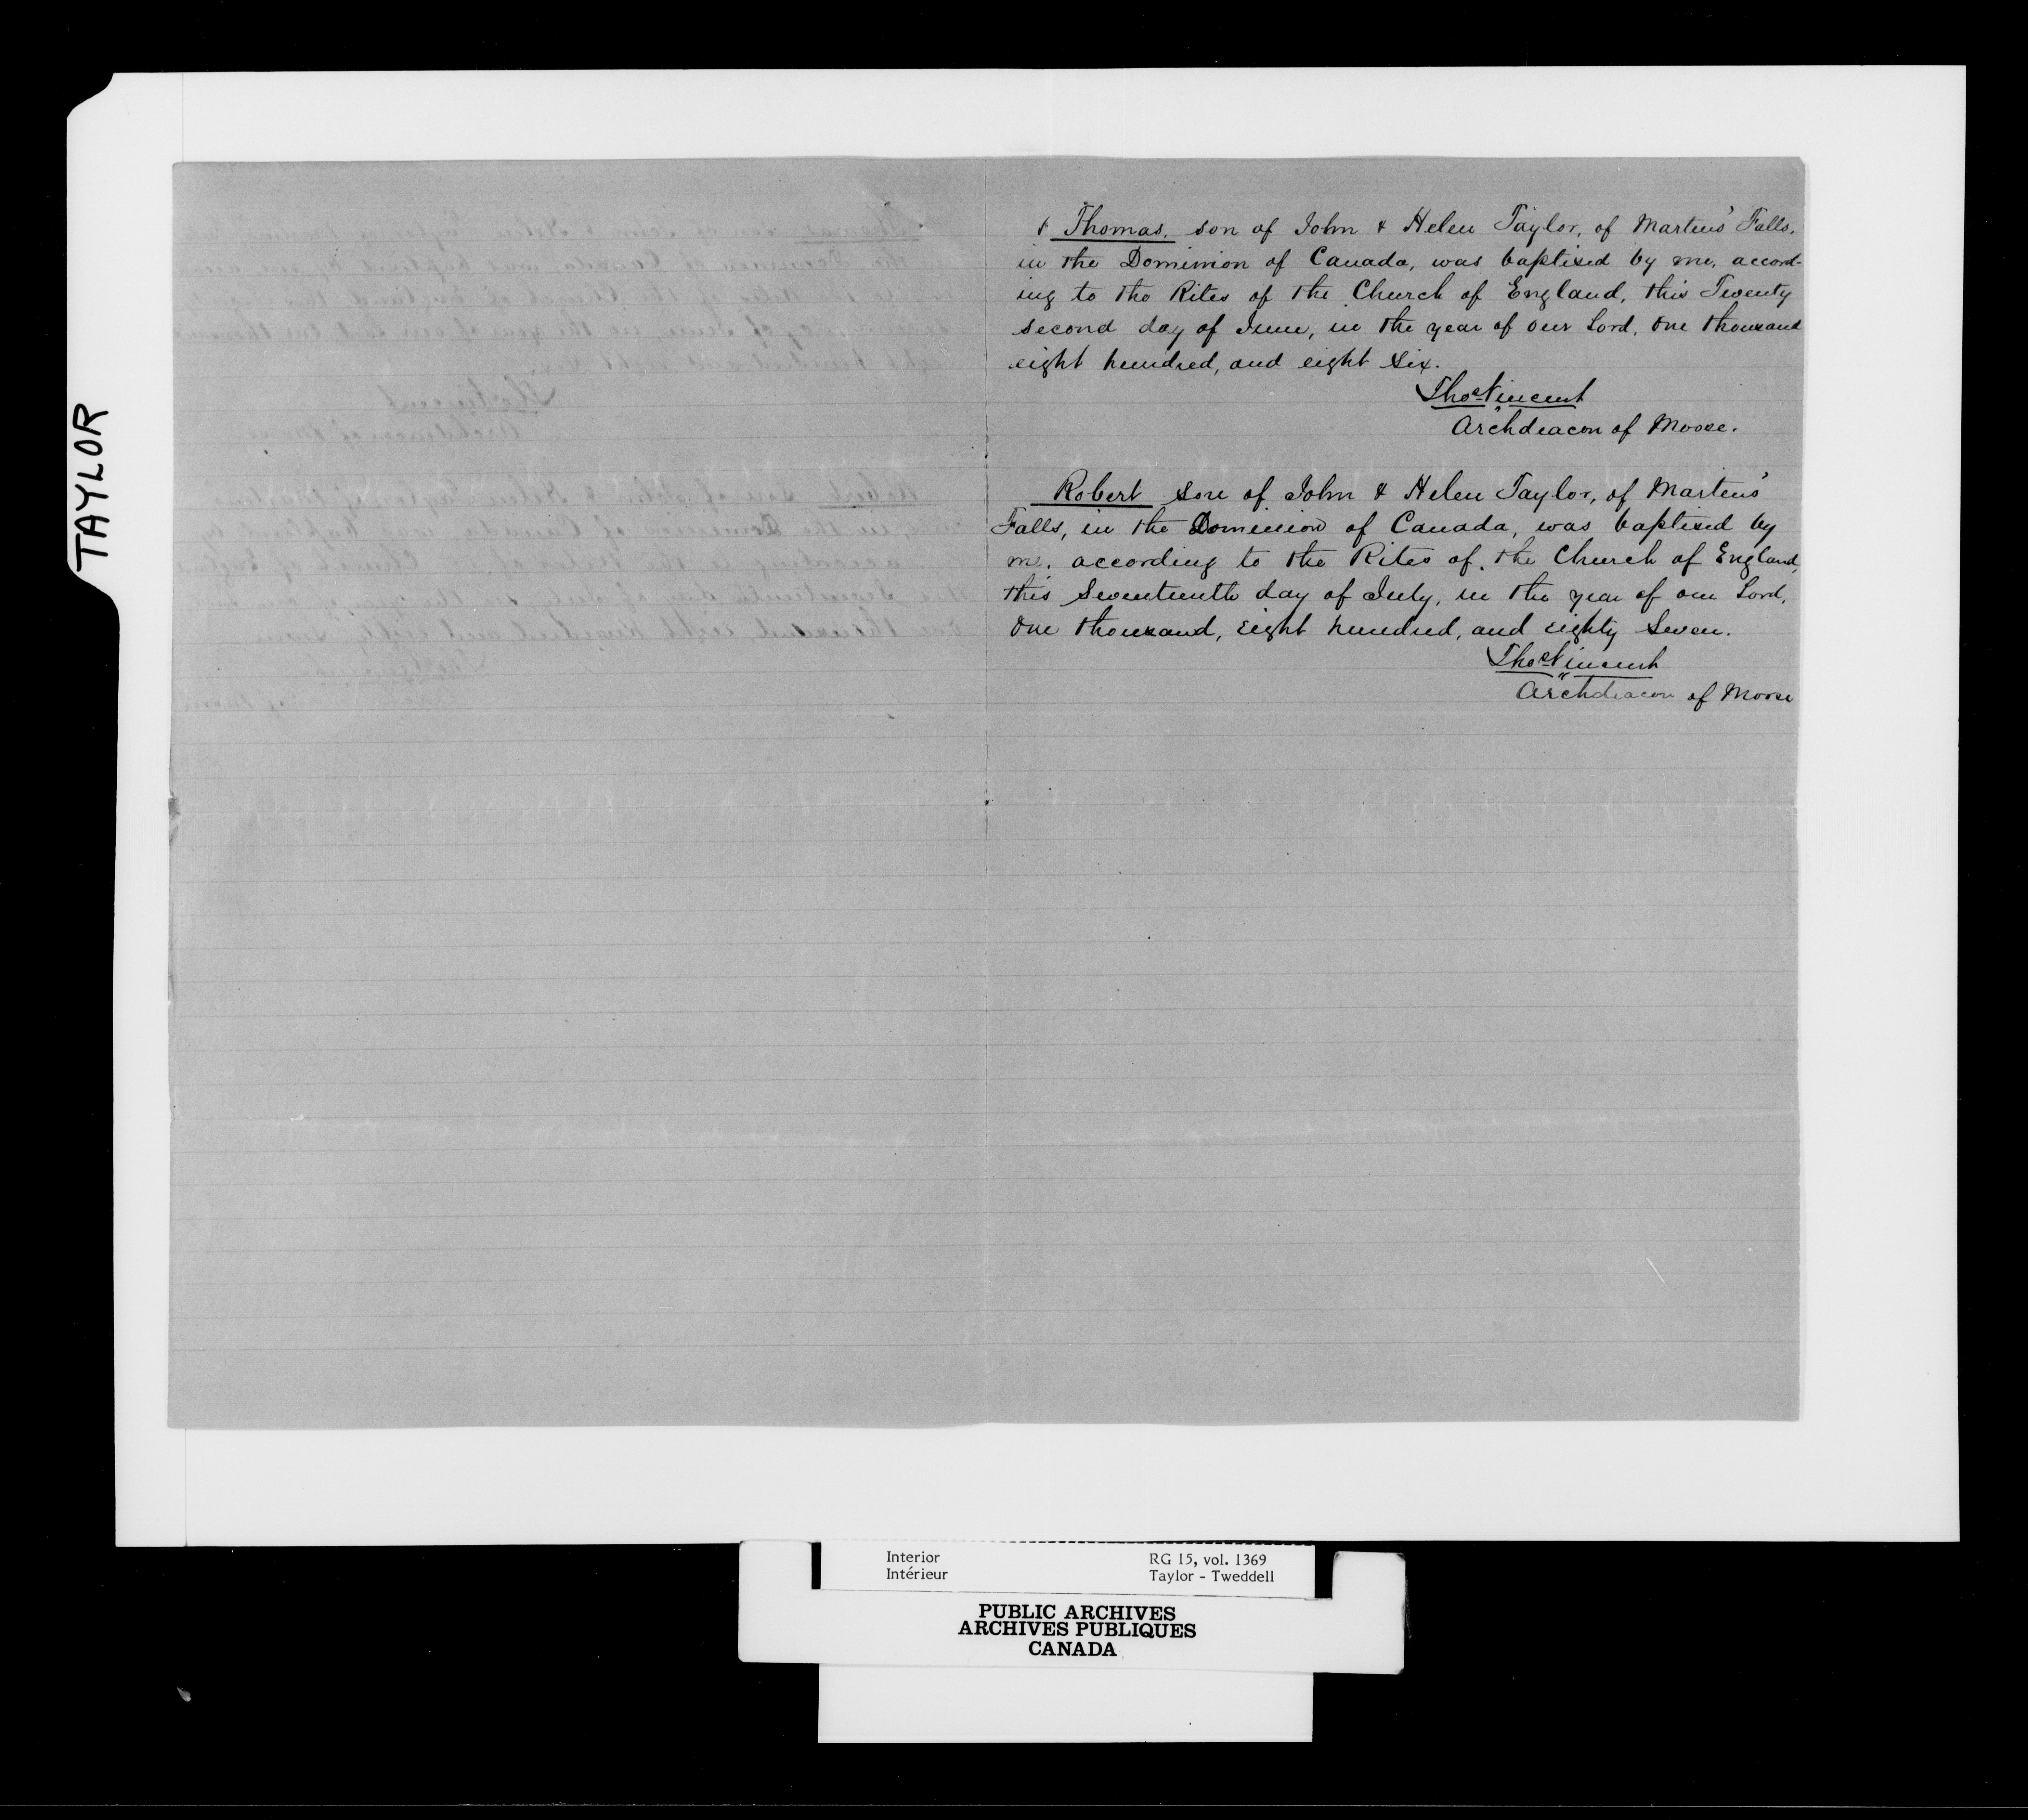 TAYLOR
Thomas, son of John & Helen Taylor, of Martens' Falls,
in the Dominion of Canada, was baptized by me, accord-
ing to the Rites of the Church of England, this Twenty
second day of June, in the year of our Lord, One thousand
eight hundred, and eight six.
Thos Vincent
Archdeacon of Moose.
Robert son of John & Helen Taylor, of Martens'
Falls, in the Dominion of Canada, was baptized by
me, according to the Rites of the Church of England,
this Seventeenth day of July, in the year of our Lord,
One thousand, eight hundred, and eighty seven.
Thos Vincent
Archdeacon of Moose
Interior RG 15, vol. 1369
Intérieur Taylor - Tweddell
PUBLIC ARCHIVES
ARCHIVES PUBLIQUES
CANADA